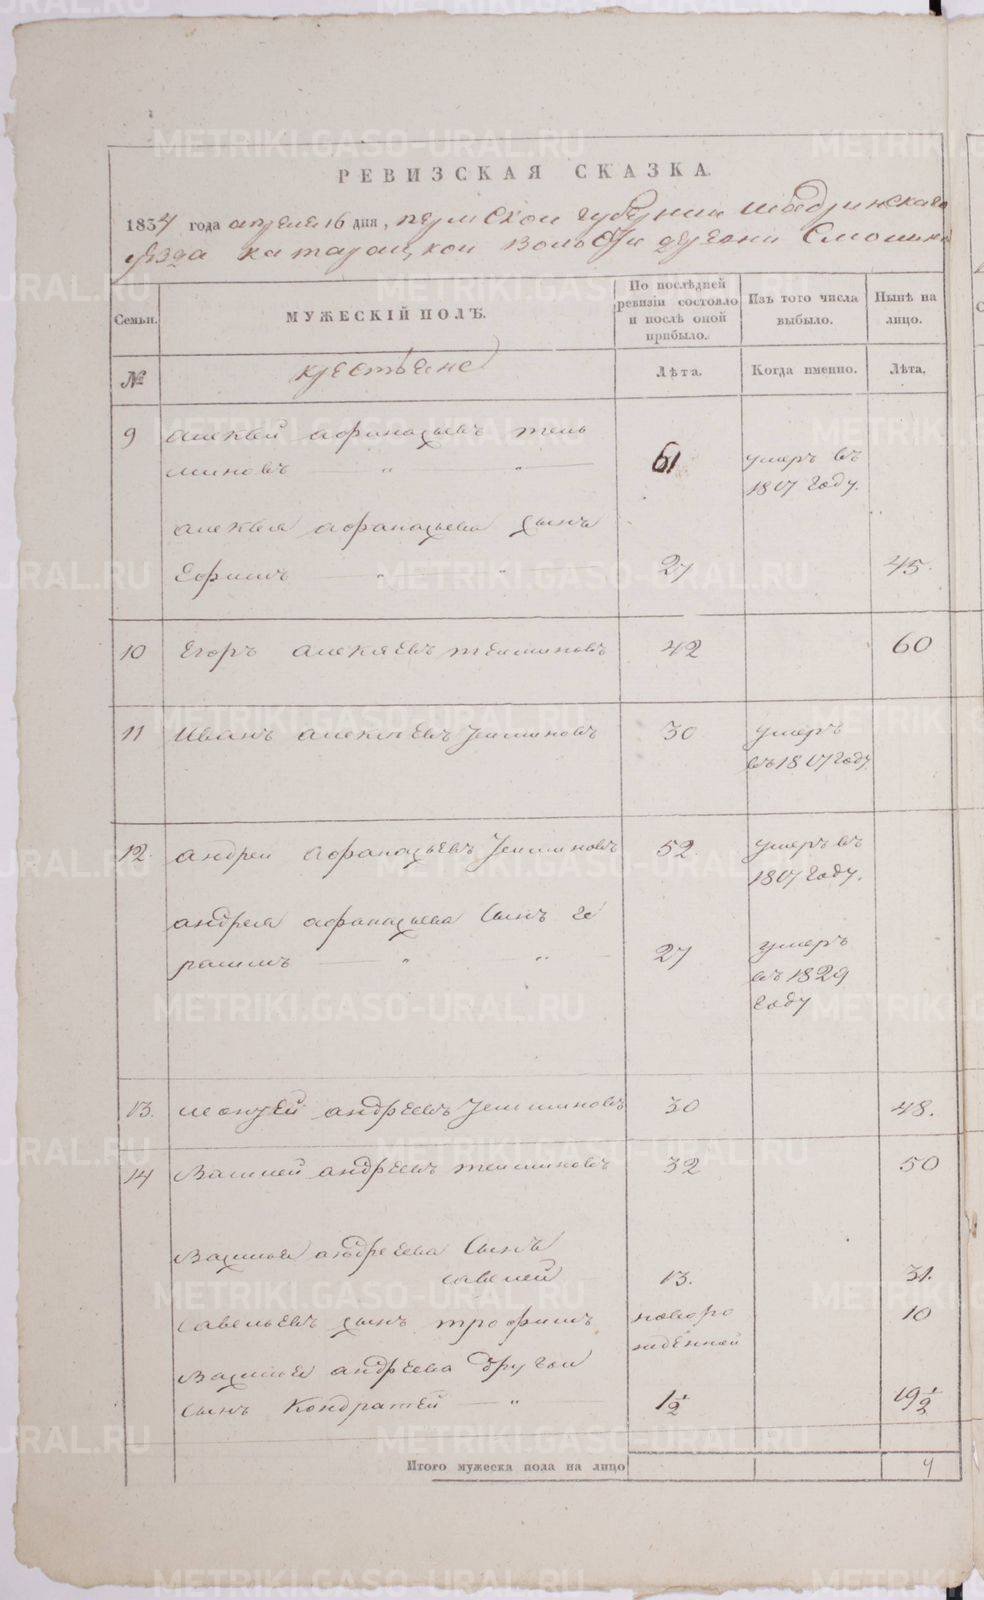 РЕВИЗСКАЯ СКАЗКА.
1834 года апреля 16 дня, пермской губернии шадринскаго
уезда катайцкой волости деревни
Семьи.
МУЖЕСКІЙ ПОЛЪ.
По послѣдней ревизіи состояло и послѣ оной прибыло.
Изъ того числа выбыло.
Нынѣ на лицо.
№ крестьяне Лѣта. Когда именно. Лѣта.
9 алексѣй афанасьевъ
миновъ " " 61 умеръ въ
1817 году.
алексѣя афанасьева сынъ
Ефимъ " " 27 45.
10 Егоръ алексѣевъ темминовъ 42 60
11 Иванъ алексѣевъ темминовъ 30 умеръ
въ 1817 году
12. андрей афанасьевъ темминовъ 52 умеръ въ
1817 году.
андрея афанасьева сынъ ге
расимъ " " 27 умеръ
въ 1829
году
13. леонтей андреевъ темминовъ 30 48.
14 Василей андреевъ темминовъ 32 50
Василья андреева сынъ
савелей 13. 31.
савельевъ сынъ трофимъ новоро 10
жденной
Василья андреева другой
сынъ Кондратей " 1 1/2 19 1/2
Итого мужеска пола на лицо
METRIKI.GASO-URAL.RU